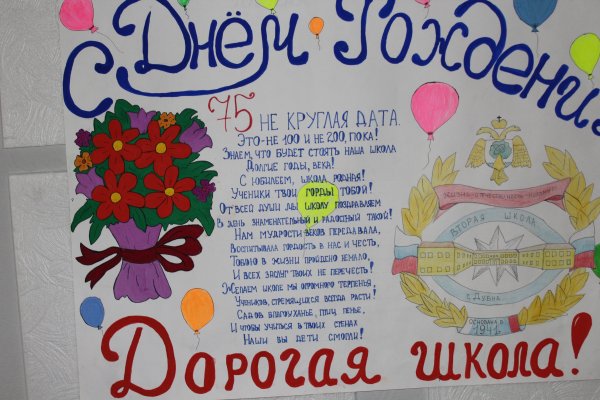 С Днём Рождени
75 НЕ КРУГЛАЯ ДАТА.
ЭТО-НЕ 100 И НЕ 200, ПОКА!
ЗНАЕМ, ЧТО БУДЕТ СТОЯТЬ НАША ШКОЛА
ДОЛГИЕ ГОДЫ, ВЕКА!
С ЮБИЛЕЕМ, ШКОЛА РОДНАЯ!
УЧЕНИКИ ТВОИ ГОРДЫ ТОБОЙ!
ОТ ВСЕЙ ДУШИ МЫ ШКОЛУ ПОЗДРАВЛЯЕМ
В ДЕНЬ ЗНАМЕНАТЕЛЬНЫЙ И РАДОСТНЫЙ ТАКОЙ!
НАМ МУДРОСТЬ ВЕКОВ ПЕРЕДАВАЛА,
ВОСПИТЫВАЛА ГОРДОСТЬ В НАС И ЧЕСТЬ,
ТОБОЮ В ЖИЗНИ ПРОЙДЕНО НЕМАЛО,
И ВСЕХ ЗАСЛУГ ТВОИХ НЕ ПЕРЕЧЕСТЬ!
ЖЕЛАЕМ ШКОЛЕ МЫ ОГРОМНОГО ТЕРПЕНЬЯ,
УЧЕНИКОВ, СТРЕМЯЩИХСЯ ВСЕГДА РАСТИ!
САДОВ БЛАГОУХАНЬЕ, ПТИЦ ПЕНЬЕ,
И ЧТОБЫ УЧИТЬСЯ В ТВОИХ СТЕНАХ
НАШИ БЫ ДЕТИ СМОГЛИ!
ВТОРАЯ ШКОЛА
Г. ДУБНА
ОСНОВАНА В
1941
ДОРОГАЯ ШКОЛА!